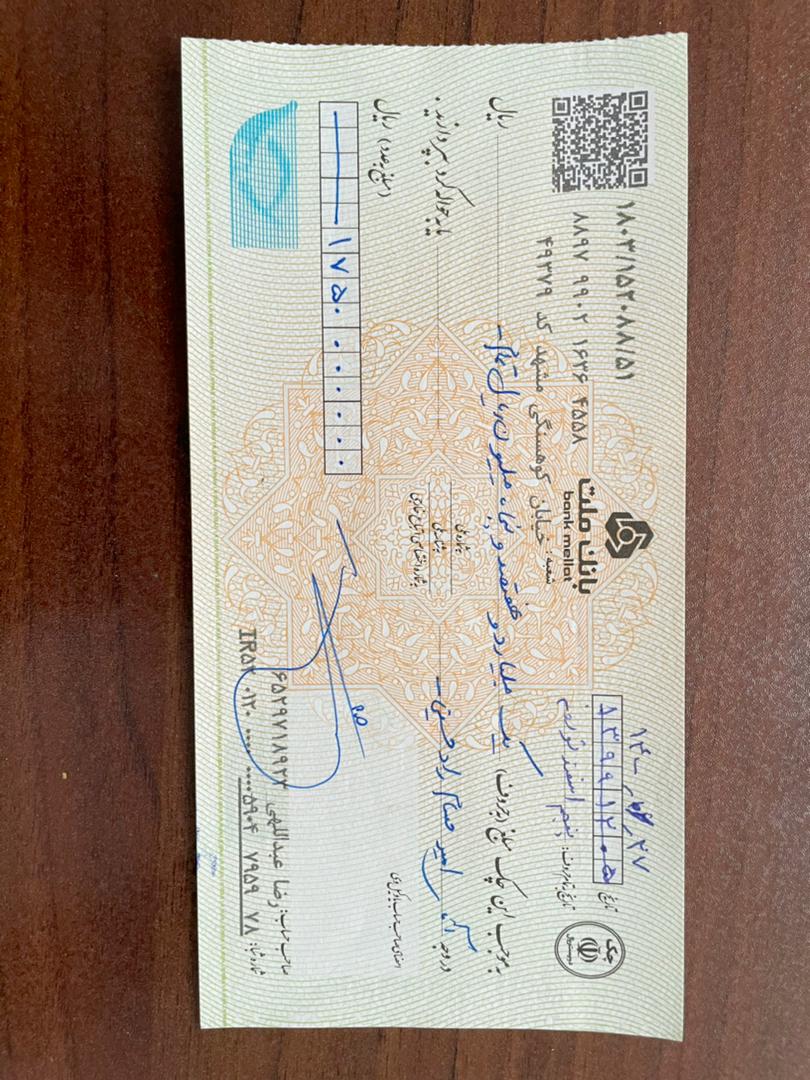 ۱۸۰۳/۱۵۲۰۸۸/۵۱
۸۸۹۷ ۹۹۰۲ ۱۶۳۶ ۴۵۵۸
بانک ملت
bank mellat
شعبه: خیابان کوهسنگی مشهد کد ۴۹۳۷۹
چک
تاریخ ۱۳۹۹۱۲۰۵
تاریخ به تمام حروف: پنجم اسفند نود و نه
به موجب این چک مبلغ (به حروف) یک میلیارد و هفتصد و پنجاه میلیون ریال تمام ریال
در وجه آقای امیر حسام راد حسینی یا به حواله کرد بپردازند.
به شماره ملی
به شناسه ملی
به شماره اختصاصی اتباع خارجی
امضای صاحب حساب یا وکیل وی
(مبلغ به عدد) ریال
۱۷۵۰۰۰۰۰۰۰
صاحب حساب: رضا عبداللهی ۶۵۲۹۷۱۸۹۲۳
شماره شبا: IR۵۲ ۰۱۲۰ ۰۰۰۰ ۰۰۰۰ ۵۹۰۴ ۷۹۵۹ ۷۸